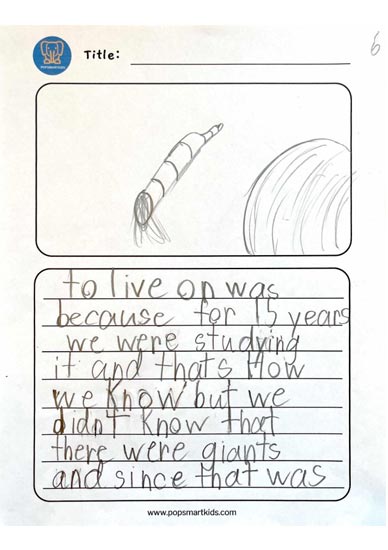 6
POPSMARTKIDS
Title:
to live on was
because for 15 years
we were studying
it and thats How
we know but we
didnt know that
there were giants
and since that was
www.popsmartkids.com